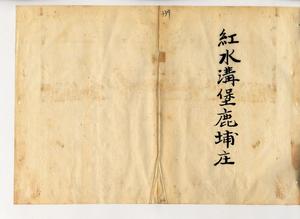 紅水溝堡鹿埔庄